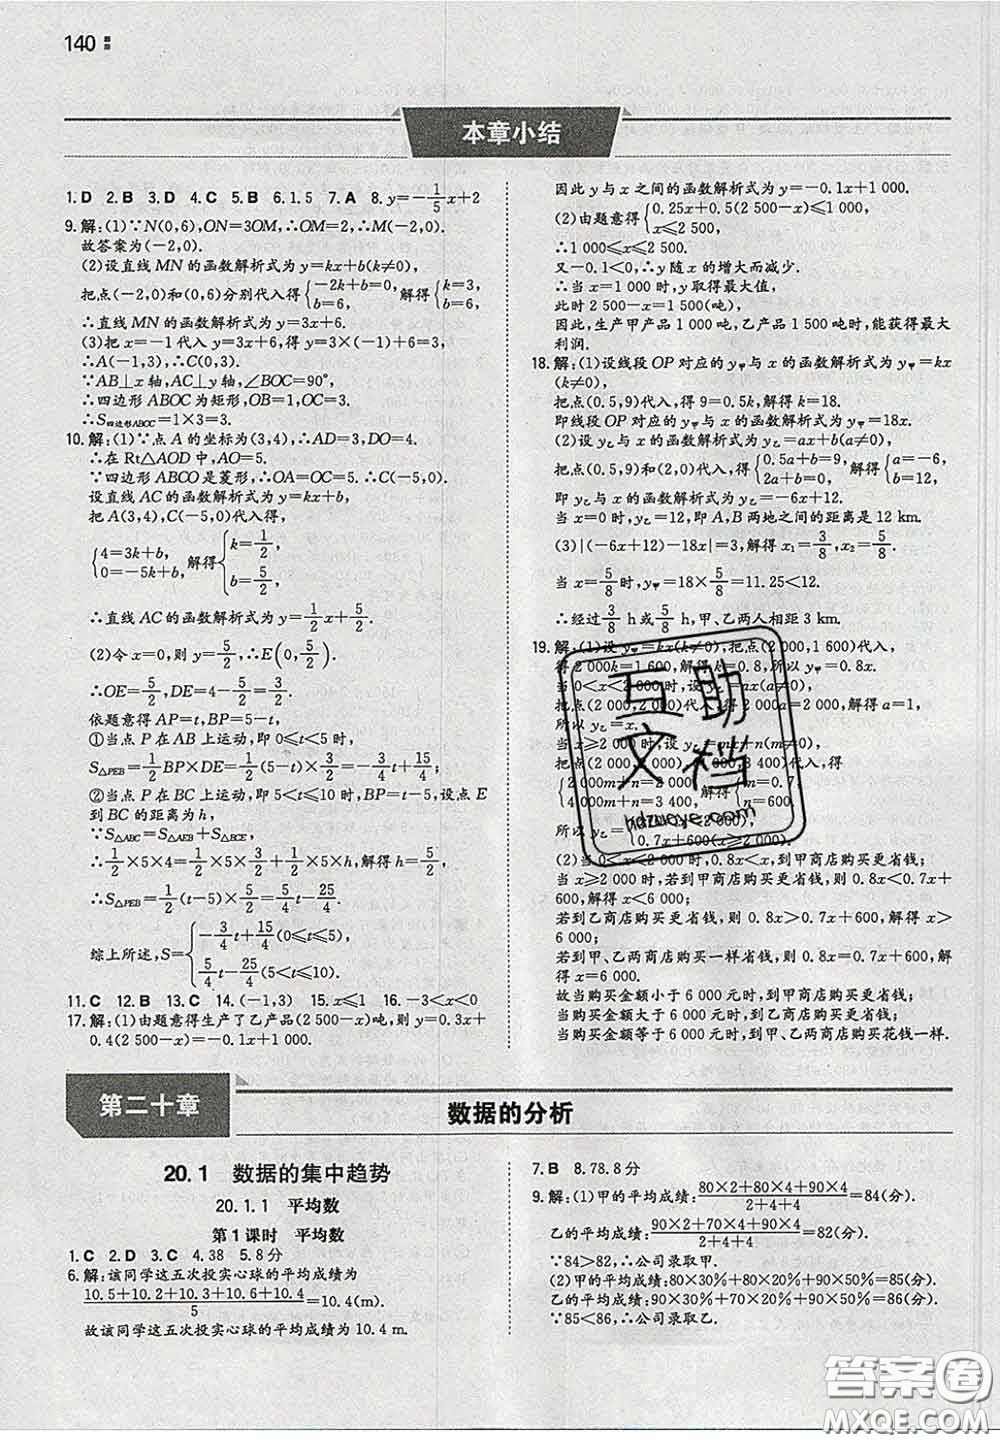 140
本章小结
1.D 2.B 3.D 4.C 5.B 6.1.5 7.A 8.y=-1/5x+2
9.解:(1)∵N(0,6),ON=3OM,∴OM=2,∴M(-2,0).
故答案为(-2,0).
(2)设直线 MN 的函数解析式为 y=kx+b(k≠0),
把点(-2,0)和(0,6)分别代入得{-2k+b=0, b=6, 解得{k=3, b=6,
∴直线 MN 的函数解析式为 y=3x+6.
(3)把 x=-1 代入 y=3x+6,得 y=3×(-1)+6=3,
∴A(-1,3),∴C(0,3).
∵AB⊥x 轴,AC⊥y 轴,∠BOC=90°,
∴四边形 ABOC 为矩形,OB=1,OC=3.
∴S四边形ABOC=1×3=3.
10.解:(1)∵点 A 的坐标为(3,4),∴AD=3,DO=4.
∴在 Rt△AOD 中,AO=5.
∵四边形 ABCO 是菱形,∴OA=OC=5,∴C(-5,0).
设直线 AC 的函数解析式为 y=kx+b,
把 A(3,4),C(-5,0)代入得,
{4=3k+b, 0=-5k+b, 解得{k=1/2, b=5/2.
∴直线 AC 的函数解析式为 y=1/2x+5/2.
(2)令 x=0,则 y=5/2,∴E(0,5/2).
∴OE=5/2,DE=4-5/2=3/2.
依题意得 AP=t,BP=5-t,
①当点 P 在 AB 上运动,即 0≤t≤5 时,
S△PEB=1/2BP×DE=1/2(5-t)×3/2=-3/4t+15/4;
②当点 P 在 BC 上运动时,即 5<t≤10 时,BP=t-5,设点 E
到 BC 的距离为 h,
∵S△ABC=S△AEB+S△BCE,
∴1/2×5×4=1/2×5×3/2+1/2×5×h,解得 h=5/2.
∴S△PEB=1/2(t-5)×5/2=5/4t-25/4.
综上所述,S={-3/4t+15/4(0≤t≤5), 5/4t-25/4(5<t≤10).
11.C 12.B 13.C 14.(-1,3) 15.x≤1 16.-3<x<0
17.解:(1)由题意得生产了乙产品(2 500-x)吨,则 y=0.3x+
0.4(2 500-x)=-0.1x+1 000.
因此 y 与 x 之间的函数解析式为 y=-0.1x+1 000.
(2)由题意得{0.25x+0.5(2 500-x)≤1 000, x≤2 500,
∴1 000≤x≤2 500.
又-0.1<0,∴y 随 x 的增大而减少.
∴当 x=1 000 时,y 取得最大值,
此时 2 500-x=1 500(吨),
因此,生产甲产品 1 000 吨,乙产品 1 500 吨时,能获得最大
利润.
18.解:(1)设线段 OP 对应的 y甲与 x 的函数解析式为 y甲=kx
(k≠0),
把点(0.5,9)代入,得 9=0.5k,解得 k=18.
即线段 OP 对应的 y甲与 x 的函数解析式为 y甲=18x.
(2)设 y乙与 x 的函数解析式为 y乙=ax+b(a≠0),
把点(0.5,9)和(2,0)代入,得{0.5a+b=9, 2a+b=0, 解得{a=-6, b=12,
即 y乙与 x 的函数解析式为 y乙=-6x+12.
当 x=0 时,y乙=12,即 A,B 两地之间的距离是 12 km.
(3)|(-6x+12)-18x|=3,解得 x1=3/8,x2=5/8.
当 x=5/8时,y甲=18×5/8=11.25<12.
∴经过3/8 h或5/8 h,甲、乙两人相距 3 km.
19.解:(1)设 y甲=kx(k≠0),把点(2 000,1 600)代入,
得 2 000k=1 600,解得 k=0.8,所以 y甲=0.8x.
当 0<x<2 000 时,设 y乙=ax(a≠0),
把点(2 000,2 000)代入,得 2 000a=2 000,解得 a=1,
所以 y乙=x.
当 x≥2 000 时,设 y乙=mx+n(m≠0),
把点(2 000,2 000),(4 000,3 400)代入,得
{2 000m+n=2 000, 4 000m+n=3 400, 解得 n=600.
所以 y乙= 0.7x+600(x≥2 000).
(2)当 0<x<2 000 时,0.8x<x,到甲商店购买更省钱;
当 x≥2 000 时,若到甲商店购买更省钱,则 0.8x<0.7x+
600,解得 x<6 000;
若到乙商店购买更省钱,则 0.8x>0.7x+600,解得 x>
6 000;
若到甲、乙两商店购买一样省钱,则 0.8x=0.7x+600,解
得 x=6 000.
故当购买金额小于 6 000 元时,到甲商店购买更省钱;
当购买金额大于 6 000 元时,到乙商店购买更省钱;
当购买金额等于 6 000 元时,到甲、乙两商店购买花钱一样.
互助
文档
hdzuoye.com
第二十章
数据的分析
20.1 数据的集中趋势
20.1.1 平均数
第1课时 平均数
1.C 2.D 3.C 4.38 5.8分
6.解:该同学这五次投实心球的平均成绩为
(10.5+10.2+10.3+10.6+10.4)/5=10.4(m).
故该同学这五次投实心球的平均成绩为 10.4 m.
7.B 8.78.8分
9.解:(1)甲的平均成绩:(80×2+80×4+90×4)/(2+4+4)=84(分).
乙的平均成绩:(90×2+70×4+90×4)/(2+4+4)=82(分).
∵84>82,∴公司录取甲.
(2)甲的平均成绩:80×30%+80×20%+90×50%=85(分).
乙的平均成绩:90×30%+70×20%+90×50%=86(分).
∵85<86,∴公司录取乙.
答案圈
MXQE.COM